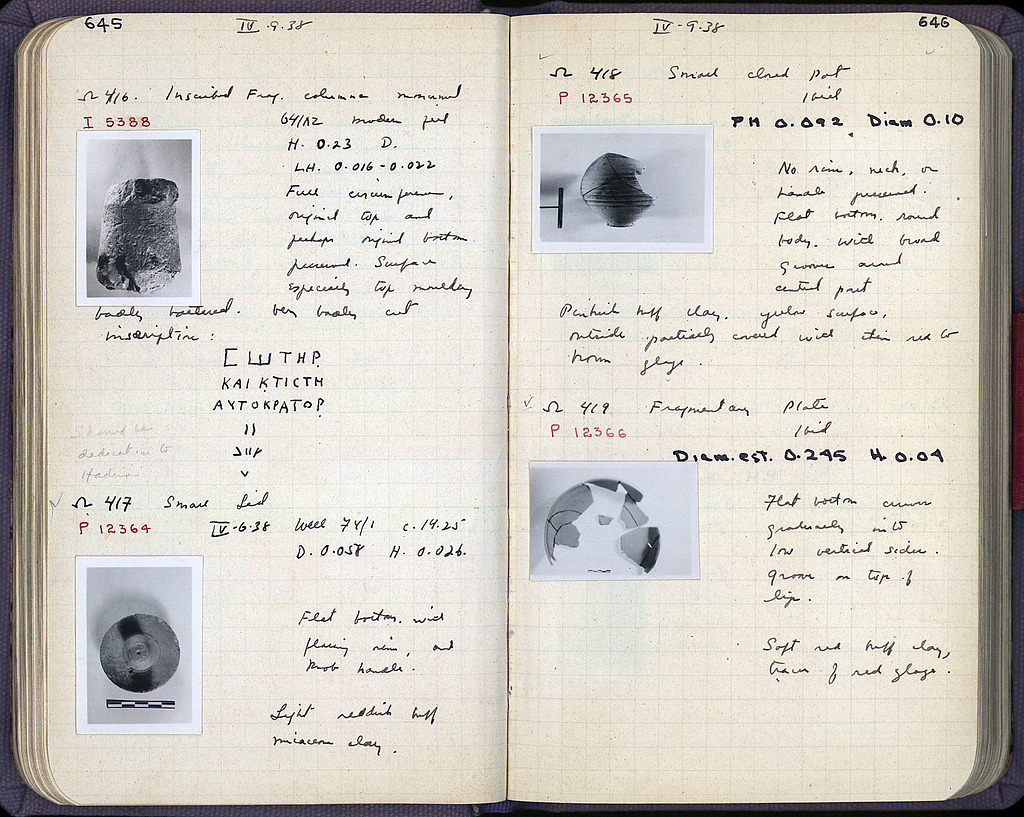 645
IV-9-38
Ω 416. Inscribed Frag. columnar monument
I 5388
64/ΛΖ modern fill
H. 0.23 D.
LH. 0.016-0.022
Full circumference,
original top and
perhaps original bottom
preserved. Surface
especially top moulding
badly battered. Very badly cut
inscription:
[ Ш ΤΗΡ
ΚΑΙ ΚΤΙCΤΗ
ΑΥΤΟΚΡΑΤΟΡ
dedication to
Hadrian
Ω 417 Small Lid
P 12364
IV-6-38 Well 74/1 c. 19.25
D. 0.058 H. 0.026.
Flat bottom, with
flaring rim, and
knob handle.
Light reddish buff
micaceous clay.
646
IV-9-38
Ω 418 Small closed Pot
P 12365
Ibid
PH 0.092 Diam 0.10
No rim, neck, or
handle preserved.
Flat bottom, round
body, with broad
groove around
central part
Pinkish buff clay, yellow surface,
outside partially covered with thin red to
brown glaze.
Ω 419 Fragmentary Plate
P 12366
Ibid
Diam. est. 0.245 H 0.04
Flat bottom curves
gradually into
low vertical sides.
Groove on top of
lip.
Soft red buff clay,
traces of red glaze.